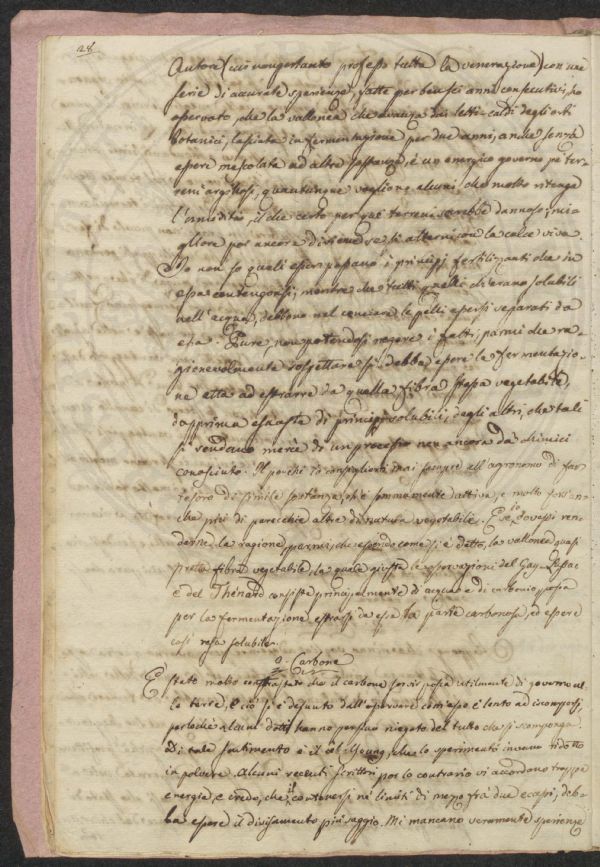 28.
Autore (cui nonpertanto professo tutta la venerazione) con una
serie di accurate sperienze, fatte per ben sei anni consecutivi, ho
osservato, che la vallonea che avanza da' letti-caldi degli orti
botanici, lasciata in fermentazione per due anni, anche senza
essere mescolata ad altre sostanze, è un energico governo pe' ter-
reni argillosi, quantunque vogliono alcuni, che molto ritenga
l'umidità, il che certo per que' terreni sarebbe dannoso; mi-
gliore poi ancora diviene se si alterni con la calce viva.
Io non so quali esser possano i principj fertilizzanti che in
essa contengonsi, mentre che tutti quelli ch'erano solubili
nell'acqua, debbono nel conciare le pelli essersi separati da
essa. Pure, non potendosi negare i fatti, parmi che ra-
gionevolmente sospettare si debba, essere la fermentazio-
ne atta ad estrarre da quella fibra stessa vegetabile,
dapprima esausta di principj solubili, degli altri, che tali
si rendano mercè di un processo non ancora da' chimici
conosciuto. Il perchè io consiglierò mai sempre all'agronomo di far
tesoro di simile sostanza, ch'è sommamente attiva, e molto
che più di parecchie altre di natura vegetabile. E se io dovessi ren-
derne la ragione, parmi, che essendo come si è detto, la vallonea quasi
pretta fibra vegetabile, la quale giusta le osservazioni del Gay-Lussac
e del Thénard consiste principalmente di acqua e di carbonio, possa
per la fermentazione estrarsi da essa la parte carbonosa, ed essere
così resa solubile.
9. Carbone
È stato molto contrastato che il carbone servir possa utilmente di governo al-
le terre, e ciò si è desunto dall'osservare com'esso è lento ad iscomporsi,
perlochè alcuni dotti hanno persino niegato del tutto che si scomponga.
Di tale sentimento è il celebre Young, che lo sperimentò invano ridotto
in polvere. Alcuni recenti scrittori poi lo contrario vi accordano troppa
energia, e credo, che il contenersi ne' limiti di mezzo fra' due eccessi, deb-
ba essere il divisamento più saggio. Mi mancano veramente sperienze